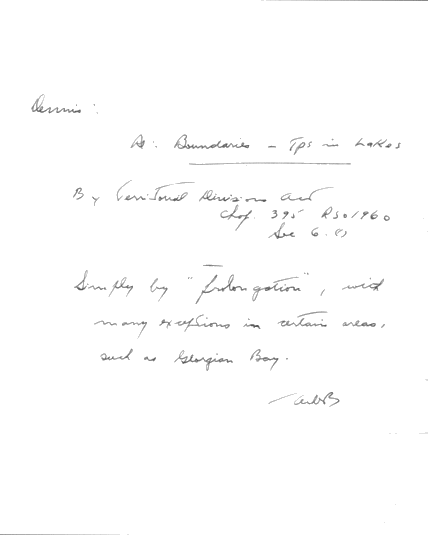 Dennis:
Re: Boundaries - Tps in Lakes
By Territorial Divisions Act
Chap. 395 RSO 1960
Sec 6.(1)
Simply by "prolongation", with
many exceptions in certain areas,
such as Georgian Bay.